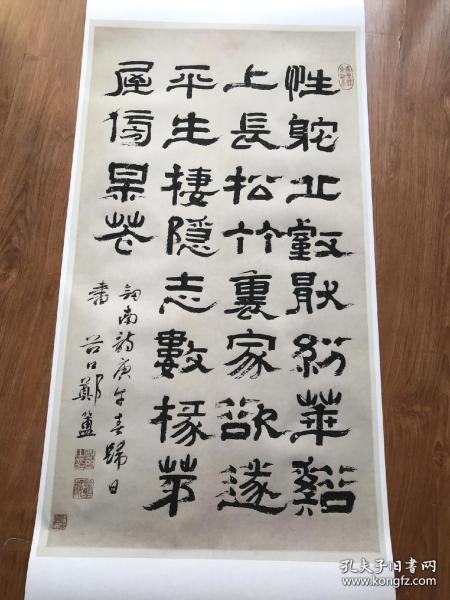 性躭丘壑厭紛華谿
上長松竹裏家欲遂
平生棲隱志數椽茅
屋傍花
南詩庚午春歸日
書 谷口鄭簠
孔夫子旧书网
www.kongfz.com